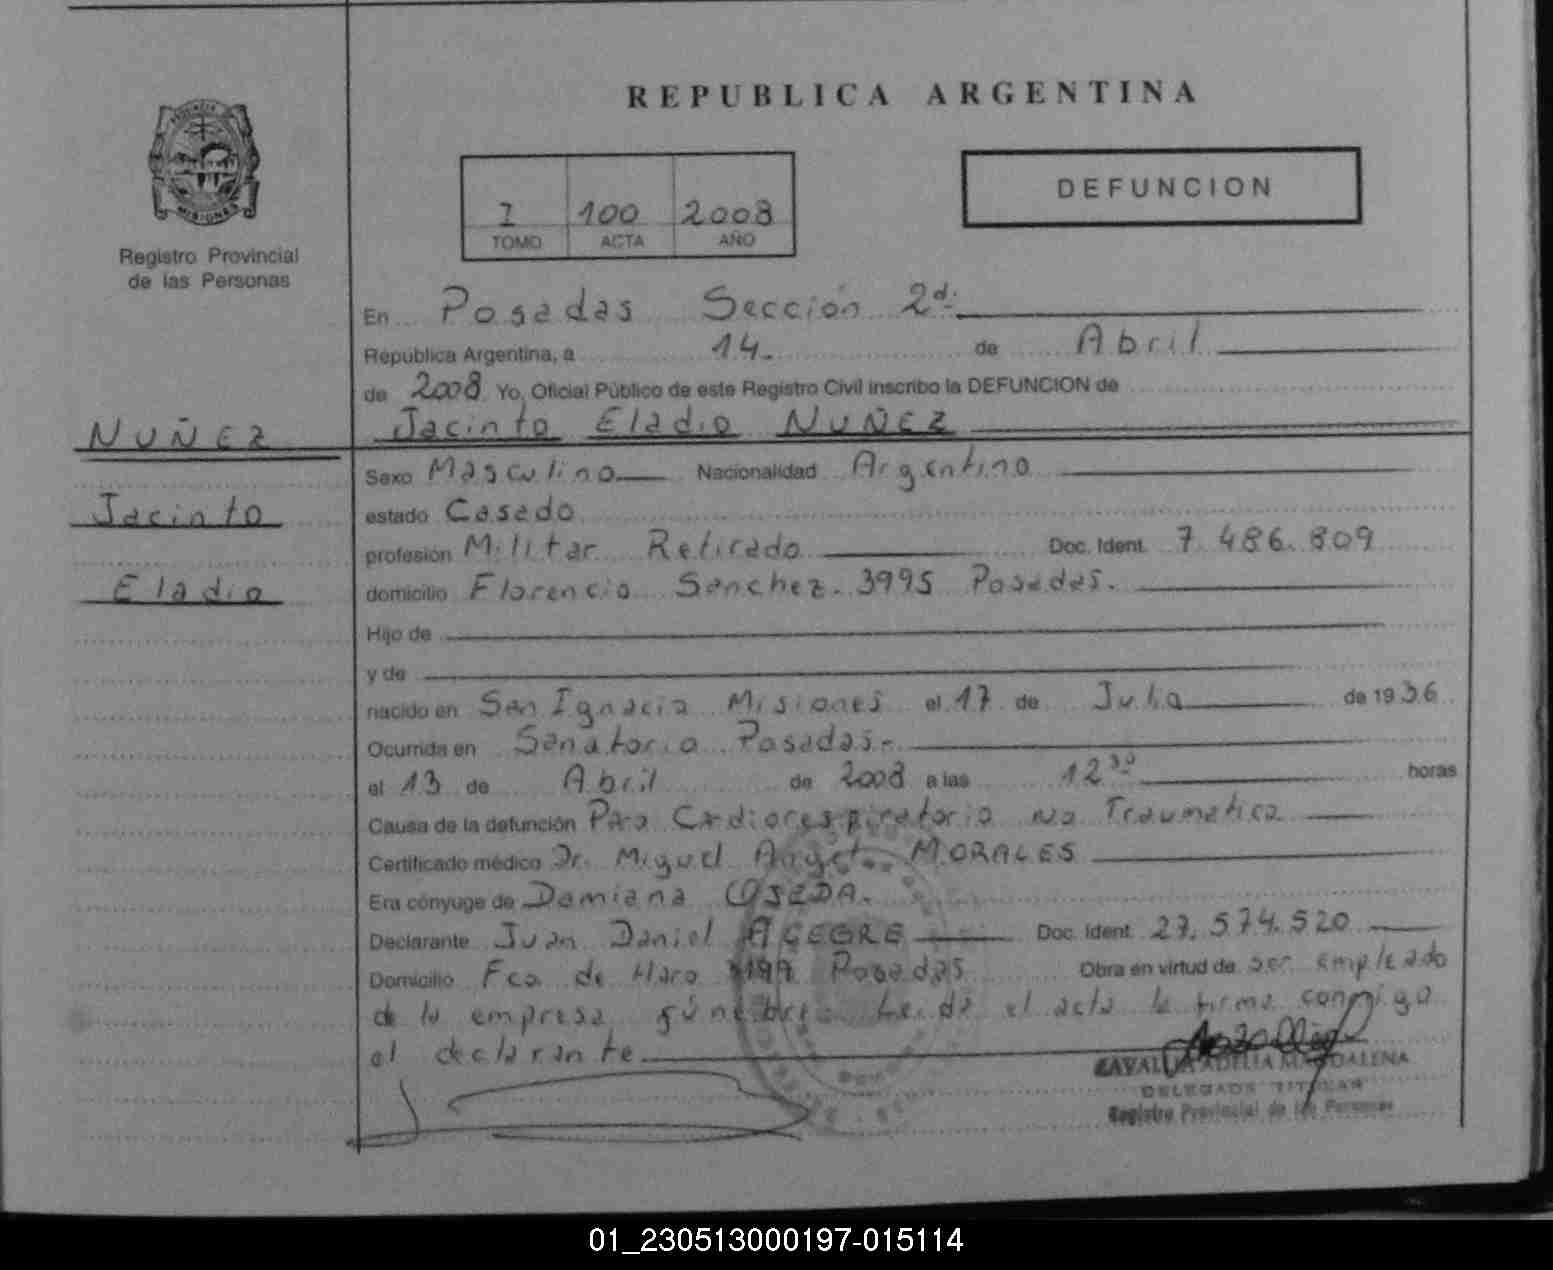 REPUBLICA ARGENTINA
MISIONES
Registro Provincial
de las Personas
I 100 2008
TOMO ACTA AÑO
DEFUNCION
En Posadas Sección 2da
República Argentina, a 14 de Abril
de 2008 Yo, Oficial Público de este Registro Civil inscribo la DEFUNCION de
Jacinto Eladio NUÑEZ
NUÑEZ
Jacinto
Eladio
Sexo Masculino Nacionalidad Argentino
estado Casado
profesión Militar Retirado Doc. Ident. 7.486.809
domicilio Florencio Sanchez 3995 Posadas.
Hijo de
y de
nacido en San Ignacio Misiones el 17 de Julio de 1936
Ocurrida en Sanatorio Posadas.-
el 13 de Abril de 2008 a las 12 30 horas
Causa de la defunción Paro Cardiorespiratorio no Traumatico
Certificado médico Dr. Miguel Angel MORALES
Era cónyuge de Damiana OJEDA.
Declarante Juan Daniel ALEGRE Doc. Ident. 27.574.520
Domicilio Fco de Haro Posadas Obra en virtud de ser empleado
de la empresa fúnebre. Leida el acta la firma conmigo
el declarante
ADELIA MAGDALENA
DELEGADA TITULAR
Registro Provincial de las Personas
01_230513000197-015114